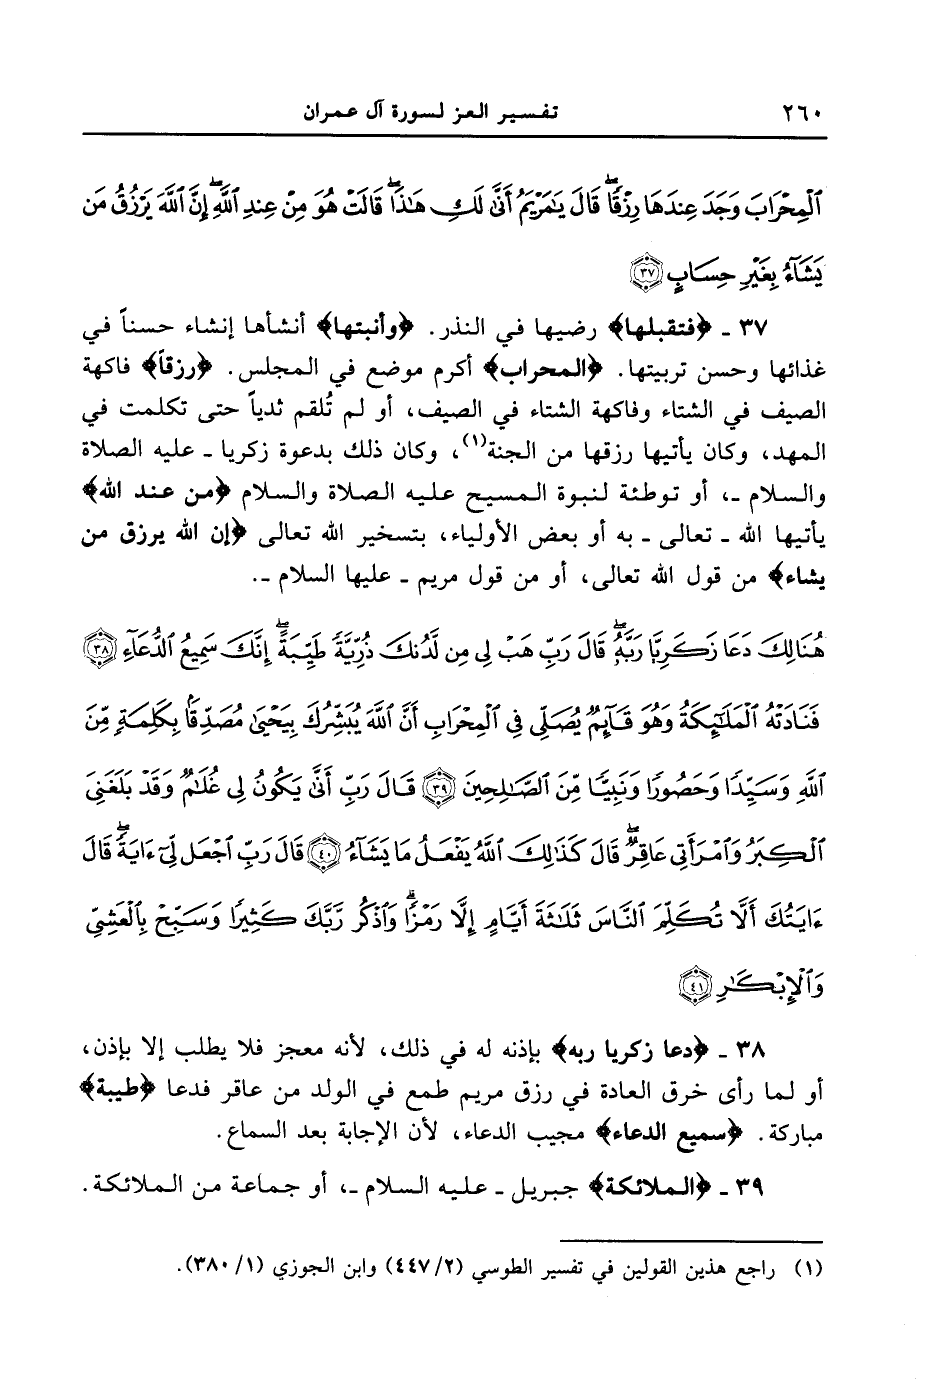 ٢٦٠
تفسير العز لسورة آل عمران
ٱلْمِحْرَابَ وَجَدَ عِندَهَا رِزْقًاۖ قَالَ يَٰمَرْيَمُ أَنَّىٰ لَكِ هَٰذَاۖ قَالَتْ هُوَ مِنْ عِندِ ٱللَّهِۖ إِنَّ ٱللَّهَ يَرْزُقُ مَن
يَشَآءُ بِغَيْرِ حِسَابٍ ٣٧
٣٧ ـ ﴿فتقبلها﴾ رضيها في النذر. ﴿وأنبتها﴾ أنشأها إنشاء حسناً في
غذائها وحسن تربيتها. ﴿المحراب﴾ أكرم موضع في المجلس. ﴿رزقاً﴾ فاكهة
الصيف في الشتاء وفاكهة الشتاء في الصيف، أو لم تُلقم ثدياً حتى تكلمت في
المهد، وكان يأتيها رزقها من الجنة(١)، وكان ذلك بدعوة زكريا ـ عليه الصلاة
والسلام ـ، أو توطئة لنبوة المسيح عليه الصلاة والسلام ﴿من عند الله﴾
يأتيها الله ـ تعالى ـ به أو بعض الأولياء، بتسخير الله تعالى ﴿إن الله يرزق من
يشاء﴾ من قول الله تعالى، أو من قول مريم ـ عليها السلام ـ.
هُنَالِكَ دَعَا زَكَرِيَّا رَبَّهُۥۖ قَالَ رَبِّ هَبْ لِى مِن لَّدُنكَ ذُرِّيَّةً طَيِّبَةًۖ إِنَّكَ سَمِيعُ ٱلدُّعَآءِ ٣٨
فَنَادَتْهُ ٱلْمَلَٰٓئِكَةُ وَهُوَ قَآئِمٌ يُصَلِّى فِى ٱلْمِحْرَابِ أَنَّ ٱللَّهَ يُبَشِّرُكَ بِيَحْيَىٰ مُصَدِّقًۢا بِكَلِمَةٍ مِّنَ
ٱللَّهِ وَسَيِّدًا وَحَصُورًا وَنَبِيًّا مِّنَ ٱلصَّٰلِحِينَ ٣٩ قَالَ رَبِّ أَنَّىٰ يَكُونُ لِى غُلَٰمٌ وَقَدْ بَلَغَنِىَ
ٱلْكِبَرُ وَٱمْرَأَتِى عَاقِرٌۖ قَالَ كَذَٰلِكَ ٱللَّهُ يَفْعَلُ مَا يَشَآءُ ٤٠ قَالَ رَبِّ ٱجْعَل لِّىٓ ءَايَةًۖ قَالَ
ءَايَتُكَ أَلَّا تُكَلِّمَ ٱلنَّاسَ ثَلَٰثَةَ أَيَّامٍ إِلَّا رَمْزًاۗ وَٱذْكُر رَّبَّكَ كَثِيرًا وَسَبِّحْ بِٱلْعَشِىِّ
وَٱلْإِبْكَٰرِ ٤١
٣٨ ـ ﴿دعا زكريا ربه﴾ بإذنه له في ذلك، لأنه معجز فلا يطلب إلا بإذن،
أو لما رأى خرق العادة في رزق مريم طمع في الولد من عاقر فدعا ﴿طيبة﴾
مباركة. ﴿سميع الدعاء﴾ مجيب الدعاء، لأن الإجابة بعد السماع.
٣٩ ـ ﴿الملائكة﴾ جبريل ـ عليه السلام ـ، أو جماعة من الملائكة.
(١) راجع هذين القولين في تفسير الطوسي (٤٤٧/٢) وابن الجوزي (٣٨٠/١).